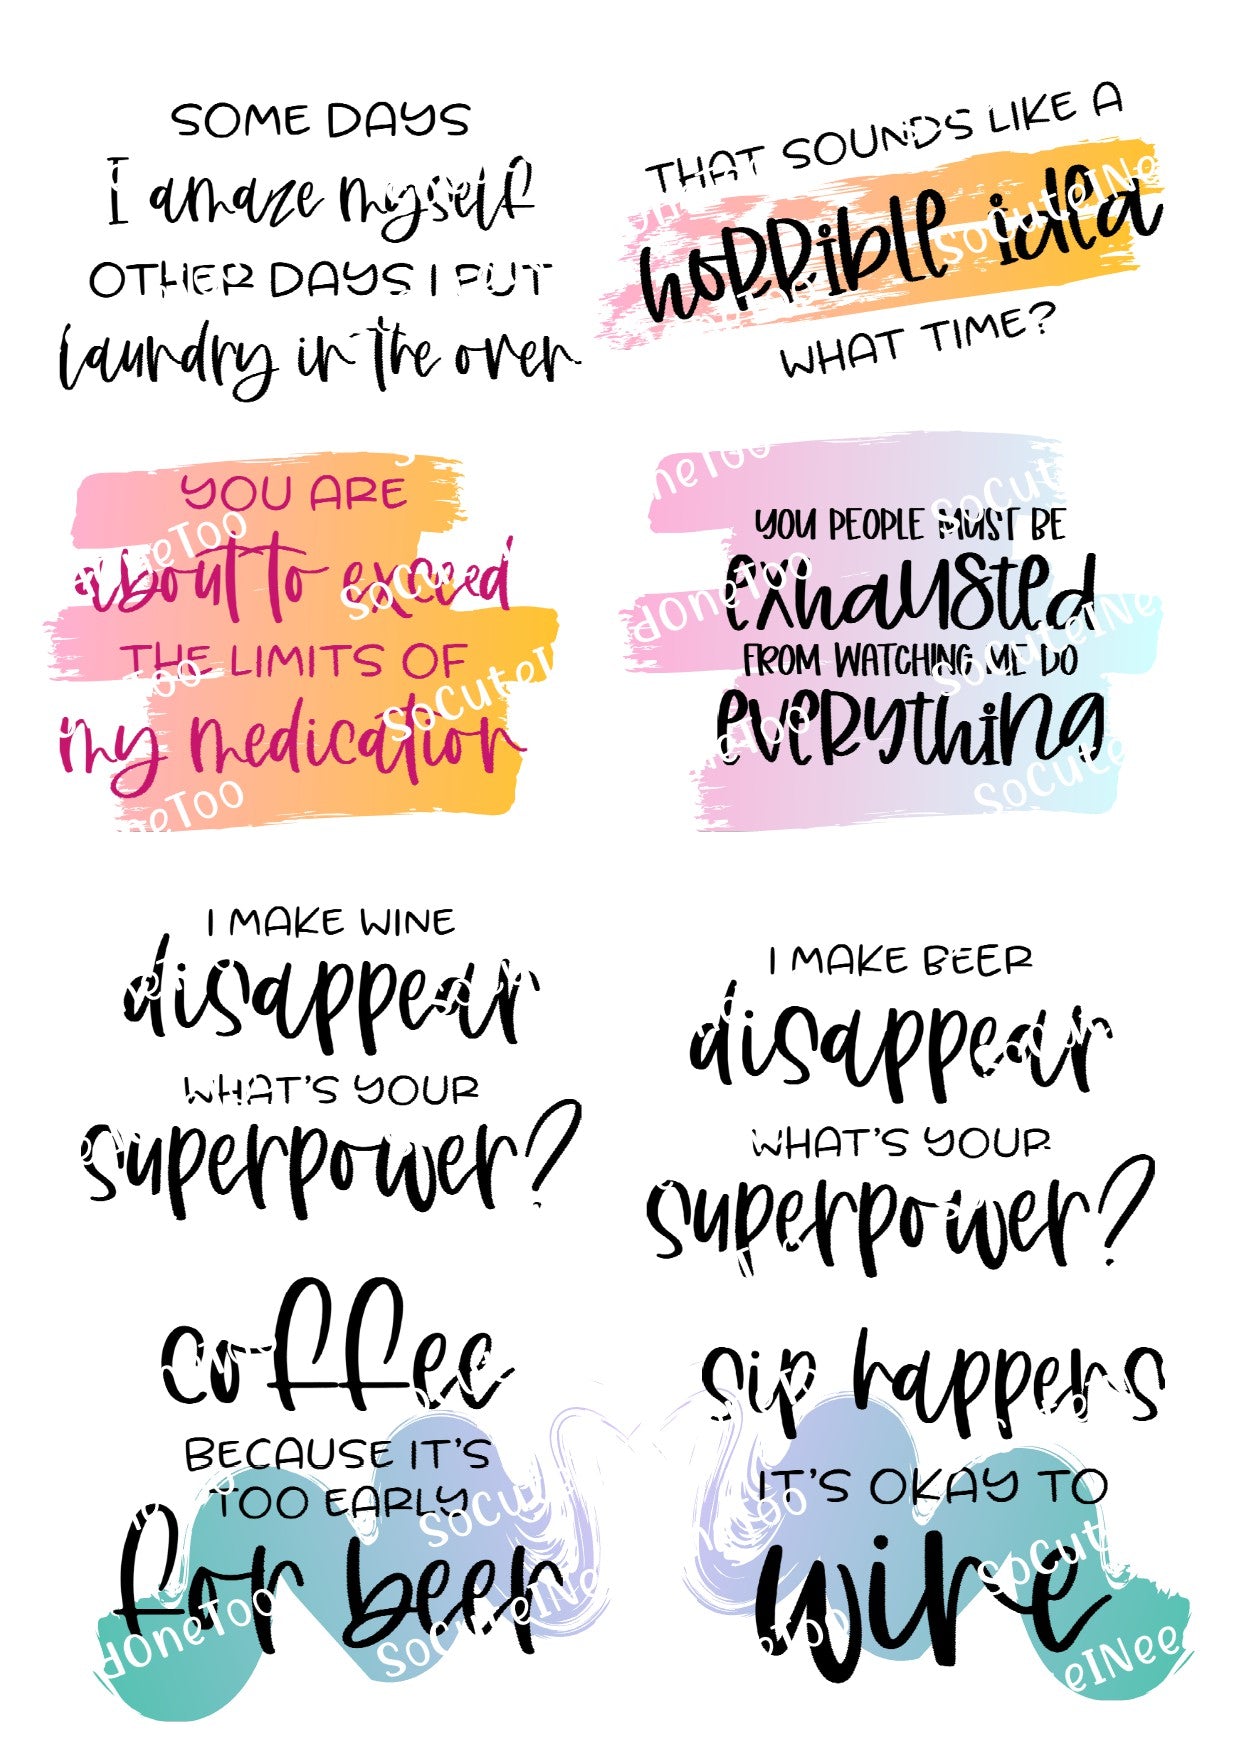 SOME DAYS
I amaze myself
OTHER DAYS I PUT
laundry in the oven
THAT SOUNDS LIKE A
horrible idea
WHAT TIME?
YOU ARE
about to exceed
THE LIMITS OF
my medication
YOU PEOPLE MUST BE
exhausted
FROM WATCHING ME DO
everything
I MAKE WINE
disappear
WHAT'S YOUR
superpower?
I MAKE BEER
disappear
WHAT'S YOUR
superpower?
coffee
BECAUSE IT'S
TOO EARLY
for beer
sip happens
IT'S OKAY TO
wine
SoCuteINe
neToo
SoCut
neToo
SoCute
dOneToo
SoCuteINe
SoCuteI
SoCute
neToo
SoCut
dOneToo
SoCuteINe
SoCut
eINee